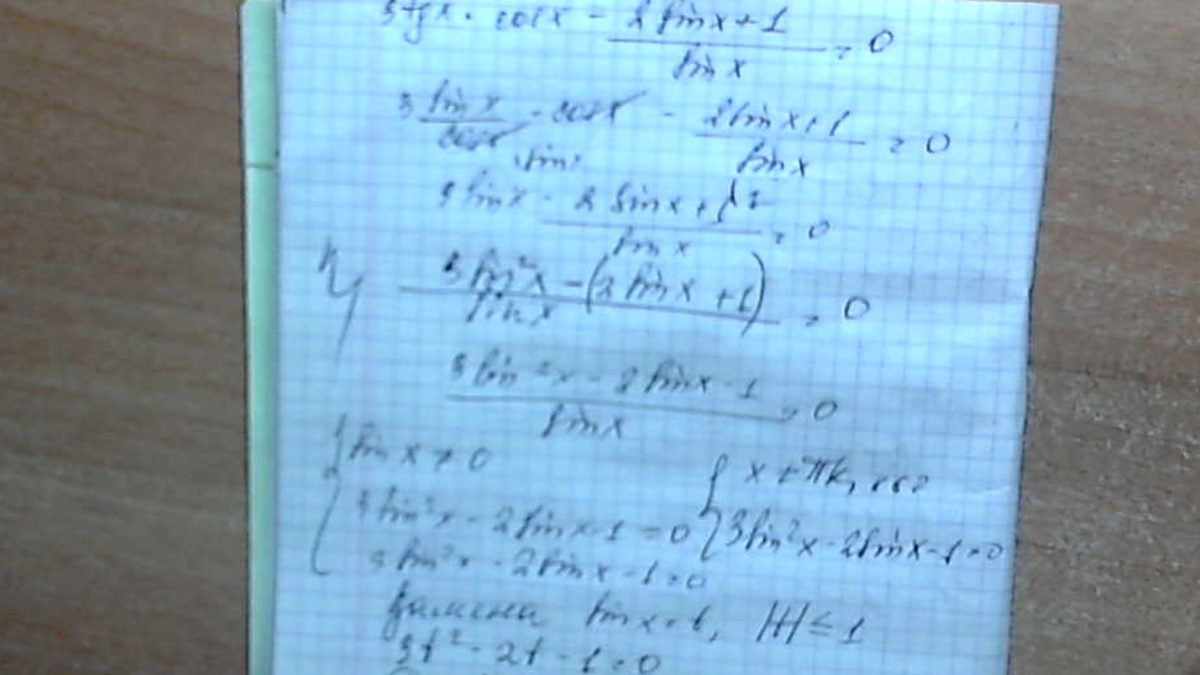 3tgx · cosx - 2sinx+1 / sinx = 0
3 sinx / cosx · cosx - 2sinx+1 / sinx = 0
3sinx - 2sinx+1 / sinx = 0
3sin²x - (2sinx+1) / sinx = 0
3sin²x - 2sinx - 1 / sinx = 0
{ sinx ≠ 0 { x ≠ πk, k∈z
3sin²x - 2sinx - 1 = 0 3sin²x - 2sinx - 1 = 0
3sin²x - 2sinx - 1 = 0
Замена sinx = t, |t| ≤ 1
3t² - 2t - 1 = 0